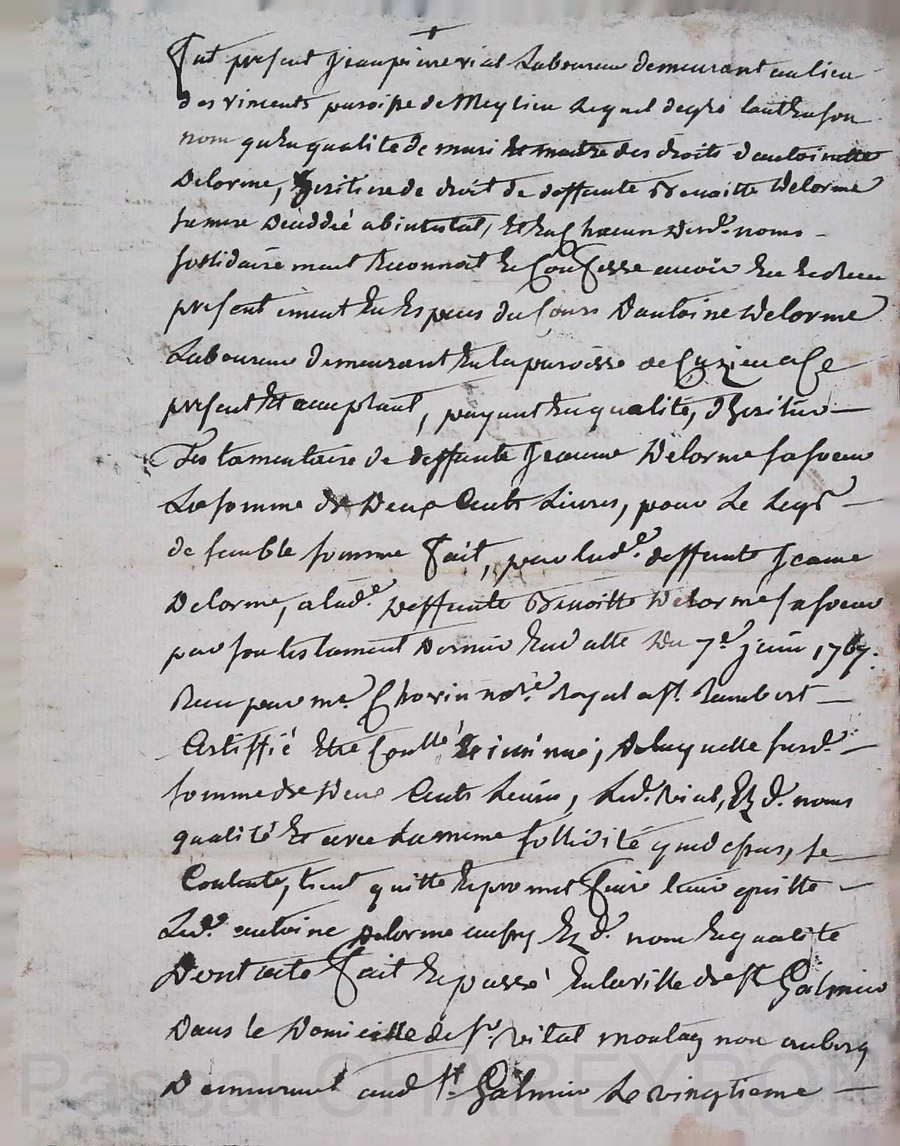 fut present Jean pierre vial Laboureur demeurant au lieu
des vincents paroisse de Meylieu Lequel de gré tant En son
nom qu'En qualité de mari Et maitre des droits d'antoinette
Delorme, heritiere de droit de deffunte Benoitte Delorme
sa mere decedée abintestat, Et En Chacun desd. noms
sollidairement Reconnoit Et Confesse avoir Eu Et Receu
presentement En Especes du Cours D'antoine Delorme
Laboureur demeurant En la paroisse de Cuzieu a Ce
present Et acceptant, payant En qualité, d'heritier
Testamentaire de deffunte Jeanne Delorme sa soeur
La somme de Deux Cents Livres, pour Le Legs
de semble somme fait, par lad.e deffunte Jeanne
Delorme, a lad.e Deffunte Benoitte Delorme sa soeur
par son testament Dernier En datte Du 7e juin 1767.
Receu par me Chovin no.re Royal a st Rambert
Certiffié Etre Conllé Et insinué, De laquelle susd.e
somme de Deux Cents Livres, Led. vial, Ez d. noms
qualité Et avec La meme sollidité que dessus, se
Contente, tient quitte Et promet faire tenir quitte
Led. antoine Delorme aussy Ez d. nom Et qualité
Dont acte fait Et passé En la ville de st Galmier
Dans le Domicille de sr. vital
Demeurant aud. st. Galmier Le vingtieme
Pascal CHAREYRON